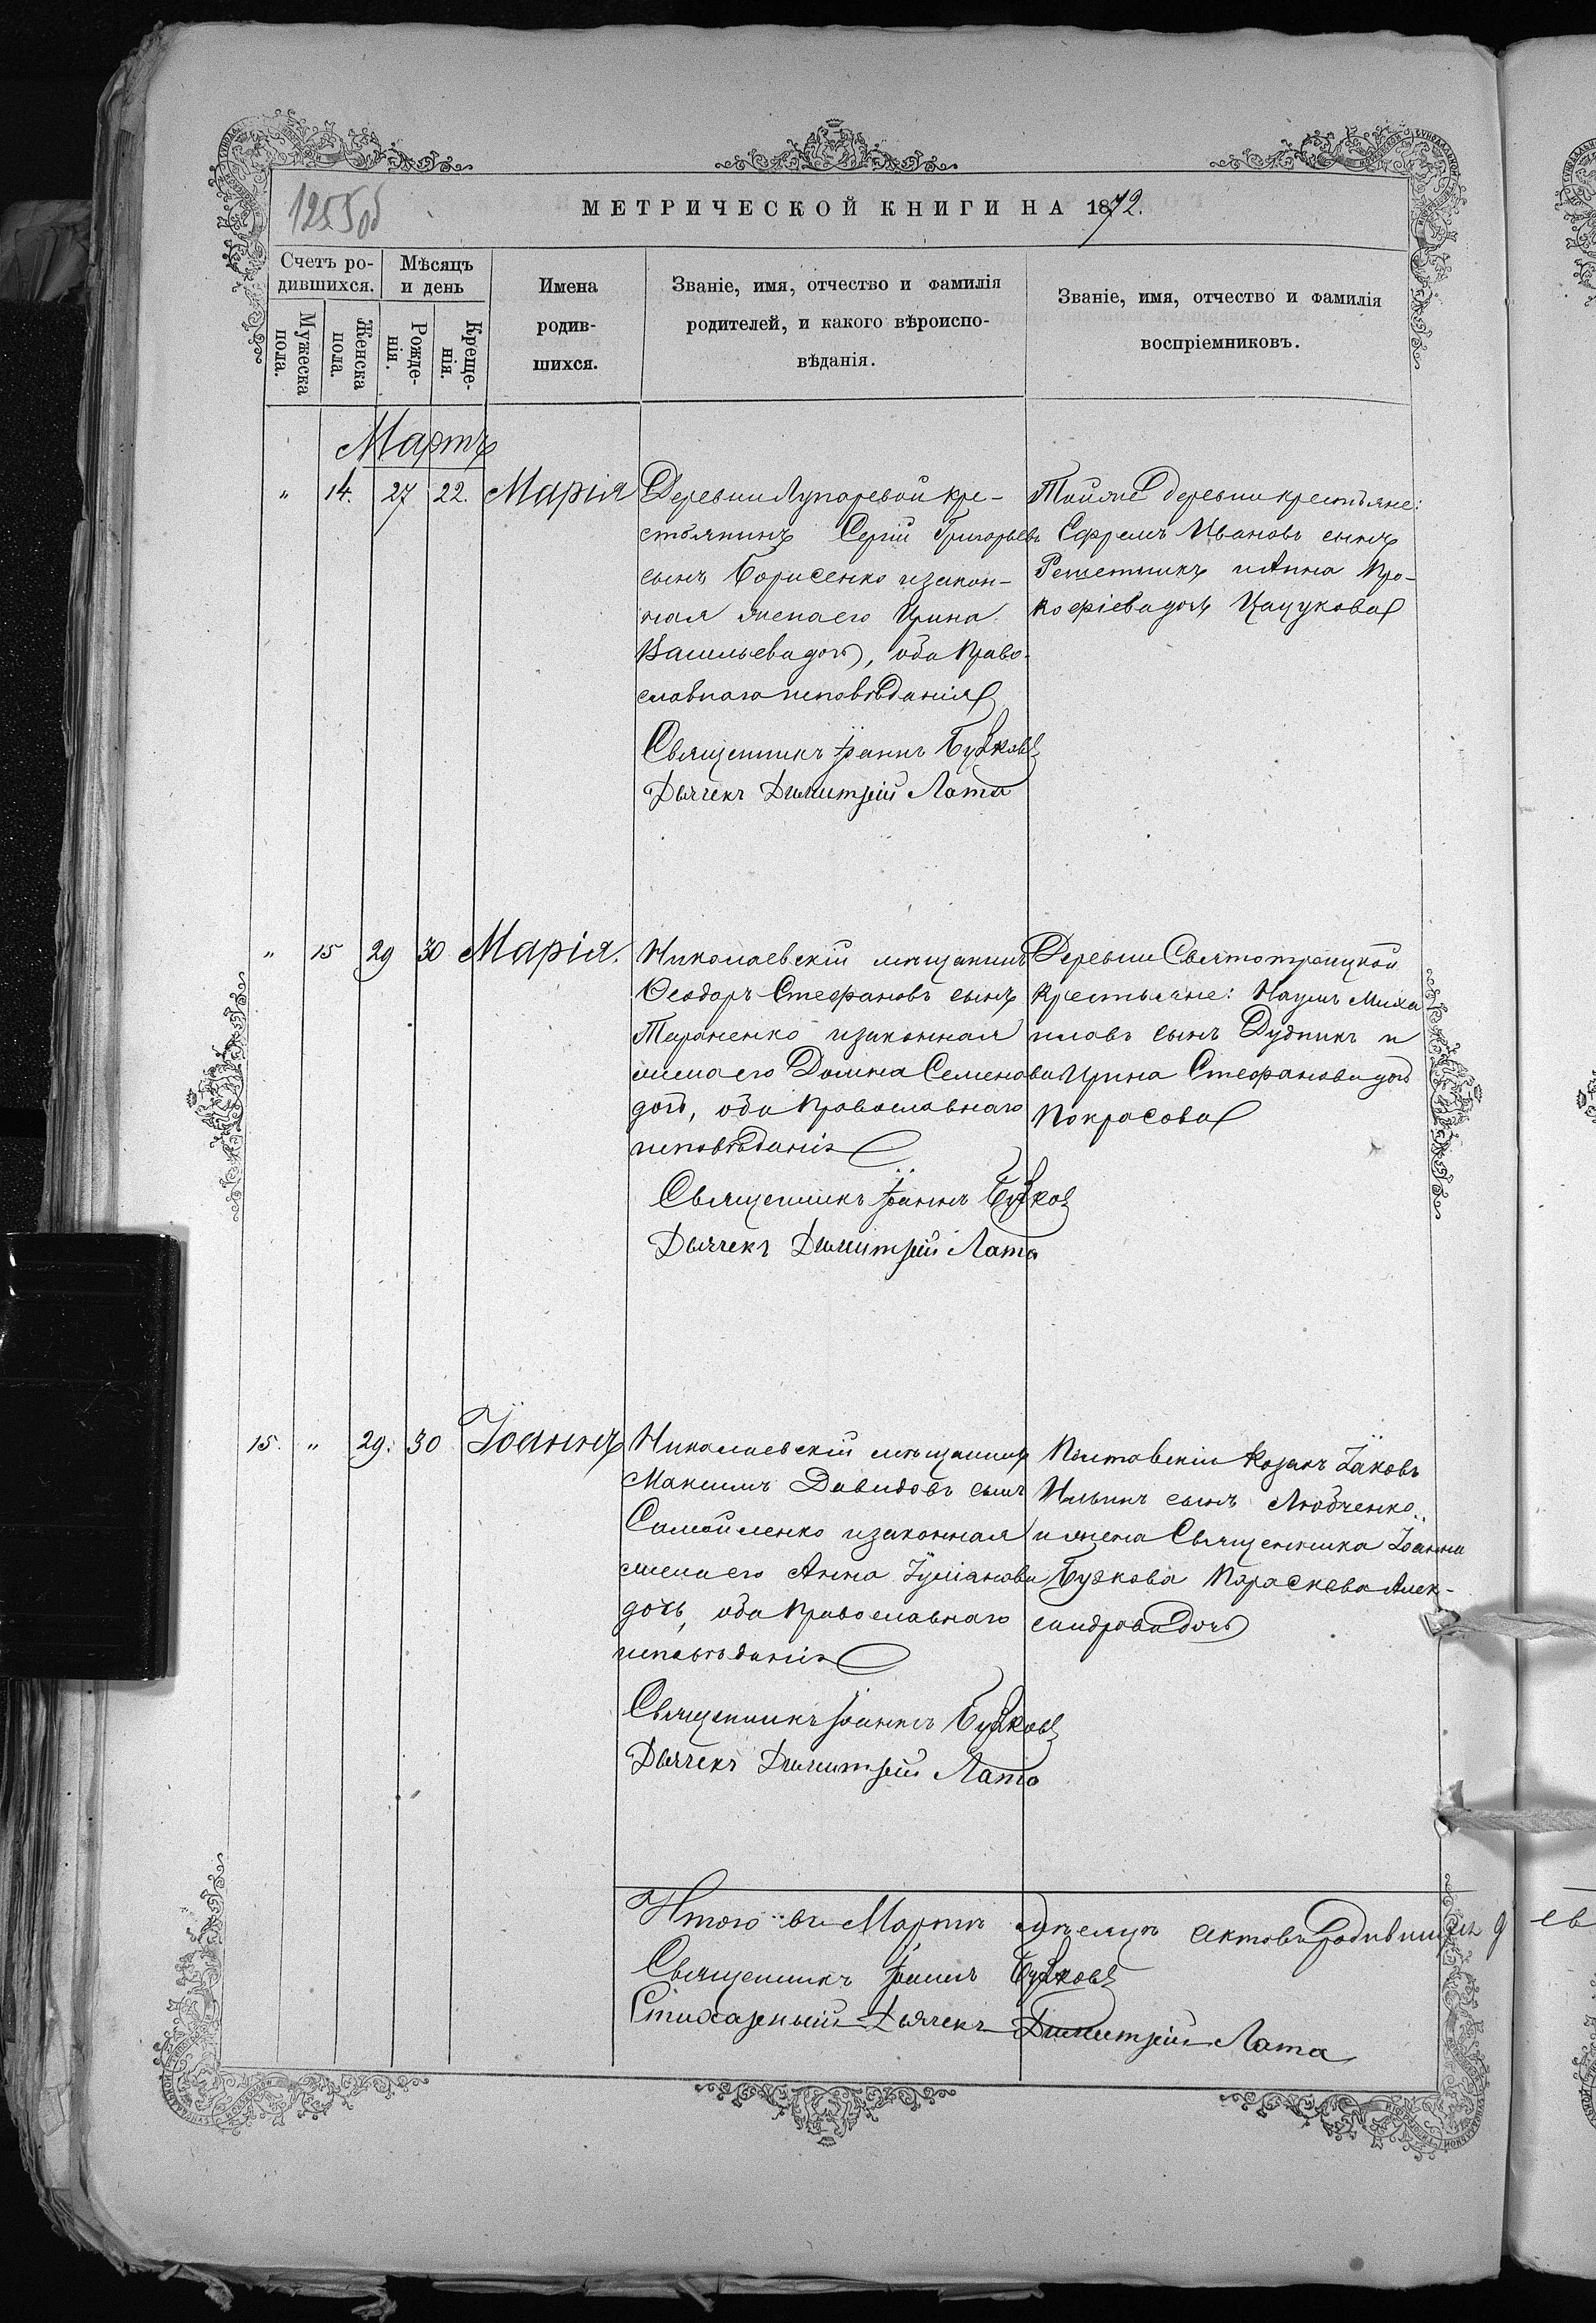 125 об
МЕТРИЧЕСКОЙ КНИГИ НА 1872.
Счетъ ро-
дившихся.
Мужеска
пола.
Женска
пола.
Мѣсяцъ
и день
Рожде-
нія.
Креще-
нія.
Имена
родив-
шихся.
Званіе, имя, отчество и фамилія
родителей, и какого вѣроиспо-
вѣданія.
Званіе, имя, отчество и фамилія
воспріемниковъ.
Мартъ
„ 14. 27 22. Марія
Деревни Лупаревой кре-
стьянинъ Сергій Григорьевъ
сынъ Борисенко и закон-
ная жена его Ирина
Васильева дочь, оба Право-
славнаго исповѣданія
Священникъ Іоаннъ Бучковъ
Дьячекъ Димитрій Лата
Тойже деревни крестьяне:
Ефремъ Ивановъ сынъ
Решетникъ и Анна Про-
кофіева дочь Цацукова
„ 15 29 30 Марія.
Николаевскій мѣщанинъ
Ѳеодоръ Стефановъ сынъ
Тараненко и законная
жена его Домна Семенова
дочь, оба Православнаго
исповѣданія
Священникъ Іоаннъ Бучковъ
Дьячекъ Димитрій Лата
Деревни Святотроицкой
Крестьяне: Наумъ Миха
иловъ сынъ Дудникъ и
Ирина Стефанова дочь
Покрасова
15. „ 29. 30 Іоаннъ
Николаевскій мѣщанинъ
Максимъ Давидовъ сынъ
Самойленко и законная
жена его Анна Іуліанова
дочь, оба Православнаго
исповѣданія
Священникъ Іоаннъ Бучковъ
Дьячекъ Димитрій Лата
Полтавскій Козакъ Іаковъ
Ильинъ сынъ Любченко
и жена Священника Іоанна
Бучкова Параскева Алек-
сандрова дочь
Итого въ Мартѣ мѣсяцѣ актовъ родившихся 9
Священникъ Іоаннъ Бучковъ
Стихарный Дьячекъ Димитрій Лата